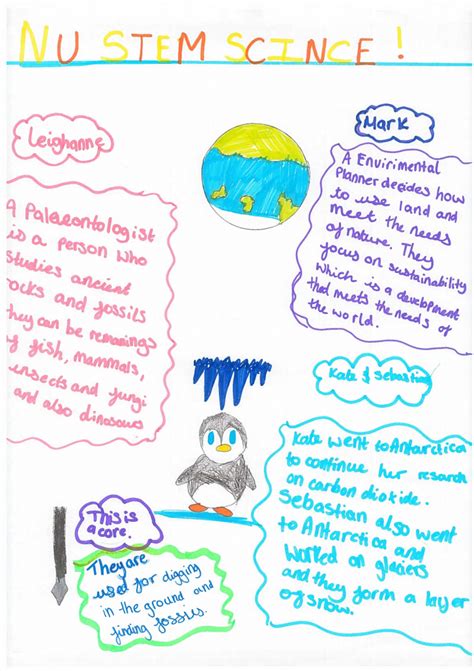 NU STEM SCINCE!
Leighanne
A Palaeontologist
is a person who
studies ancient
rocks and fossils
they can be remanings
of fish, mammals,
insects and fungi
and also dinosaurs
Mark
A Envirimental
Planner decides how
to use land and
meet the needs
of nature. They
focus on sustainability
which is a development
that meets the needs of
the world.
Kate & Sebastian
Kate went to Antarctica
to continue her research
on carbon dioxide.
Sebastian also went
to Antarctica and
worked on glaciers
and they form a layer
of snow.
This is
a core.
They are
used for digging
in the ground and
finding fossils.